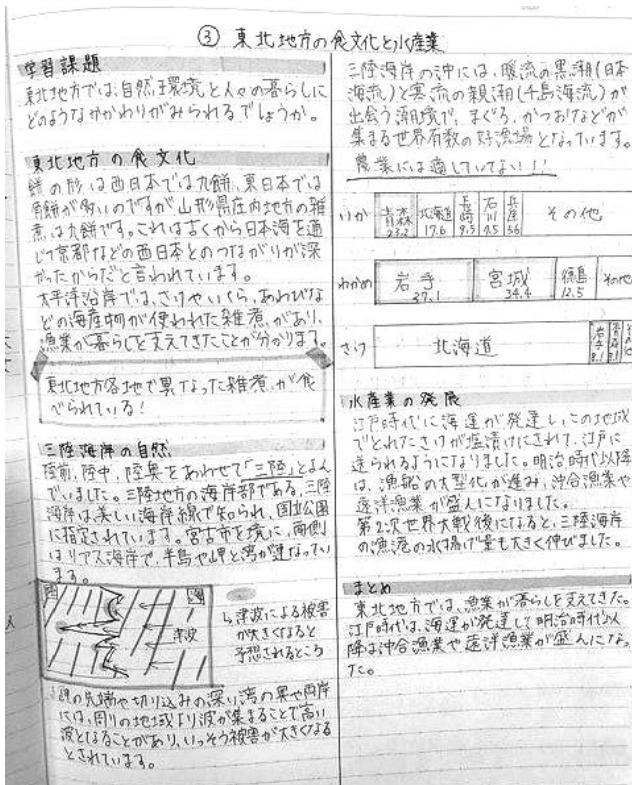 ③ 東北地方の食文化と水産業
学習課題
東北地方では、自然環境と人々の暮らしに
どのようなかかわりがみられるでしょうか。
東北地方の食文化
餅の形は西日本では丸餅、東日本では
角餅が多いのですが山形県庄内地方の雑
煮は丸餅です。これは古くから日本海を通
じて京都などの西日本とのつながりが深
かったからだと言われています。
太平洋沿岸では、さけやいくら、あわびな
どの海産物が使われた雑煮があり、
漁業が暮らしを支えてきたことが分かります。
東北地方各地で異なった雑煮が食
べられている!
三陸海岸の自然
陸前、陸中、陸奥をあわせて「三陸」とよん
でいました。三陸地方の海岸部である、三陸
海岸は美しい海岸線で知られ、国立公園
に指定されています。宮古市を境に、南側
はリアス海岸で、半島や岬と湾が連なってい
ます。
陸
海
津波
↳津波による被害
が大きくなると
予想されるところ
岬の先端や切り込みの深い湾の奥や両岸
には、周りの地域より波が集まることで高い
波となることがあり、いっそう被害が大きくなる
とされています。
三陸海岸の沖には、暖流の黒潮(日本
海流)と寒流の親潮(千島海流)が
出会う潮境で、まぐろ、かつおなどが
集まる世界有数の好漁場となっています。
農業には適していてない!!
いか 青森 23.2 北海道 17.6 長崎 9.5 石川 7.5 兵庫 5.6 その他
わかめ 岩手 37.1 宮城 34.4 徳島 12.5 その他
さけ 北海道 岩手 8.1 青森
水産業の発展
江戸時代に海運が発達し、この地域
でとれたさけが塩漬けにされて、江戸に
送られるようになりました。明治時代以降
は、漁船の大型化が進み、沖合漁業や
遠洋漁業が盛んになりました。
第2次世界大戦後になると、三陸海岸
の漁港の水揚げ量も大きく伸びました。
まとめ
東北地方では、漁業が暮らしを支えてきた。
江戸時代は、海運が発達して明治時代以
降は沖合漁業や遠洋漁業が盛んになっ
た。